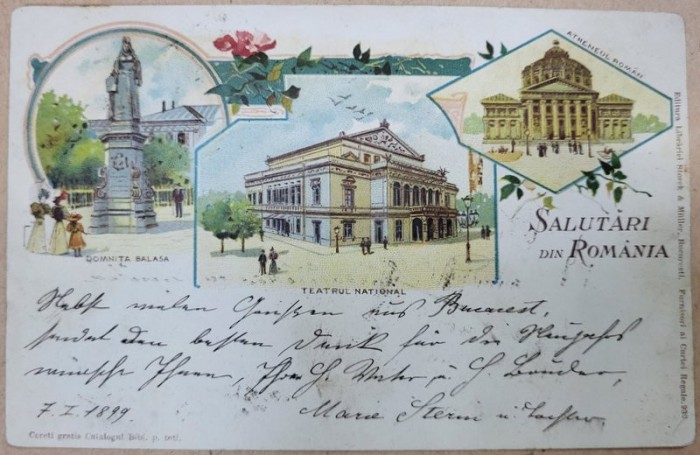 ATHENEUL ROMÂN
DOMNITA BALASA
TEATRUL NATIONAL
SALUTĂRI
DIN ROMÂNIA
Nebst vielen Grüßen aus Bucarest,
sendet den besten Dank für die Neujahrs
wünsche Ihnen, Ihrer Vater u. H. Bruder,
7. I. 1899. Marie Stern u. Tochter.
Cereti gratis Catalogul Bibl. p. toti.
Editura Librăriei Storck & Müller, Bucuresti, Furnisori ai Curtei Regale. 990